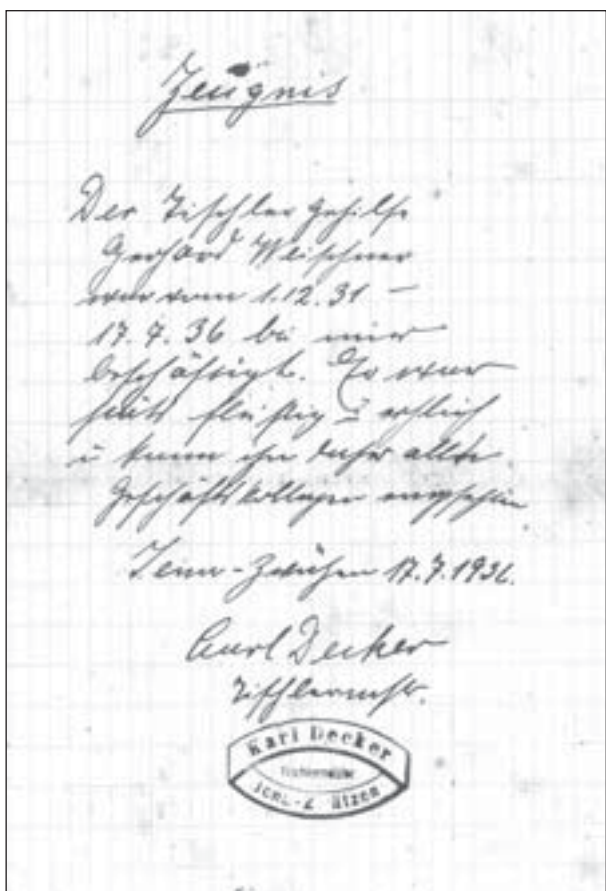 Zeugnis
Der Tischler Gehilfe
Gerhard Meischner
war vom 1.12.31 –
17.7.36 bei mir
beschäftigt. Er war
stets fleißig u ehrlich
u kann ihn daher allen
Geschäftskollegen empfehlen
Jena-Zwätzen 17.7.1936.
Karl Decker
Tischlermstr.
Karl Decker
Tischlermeister
Jena-Zwätzen